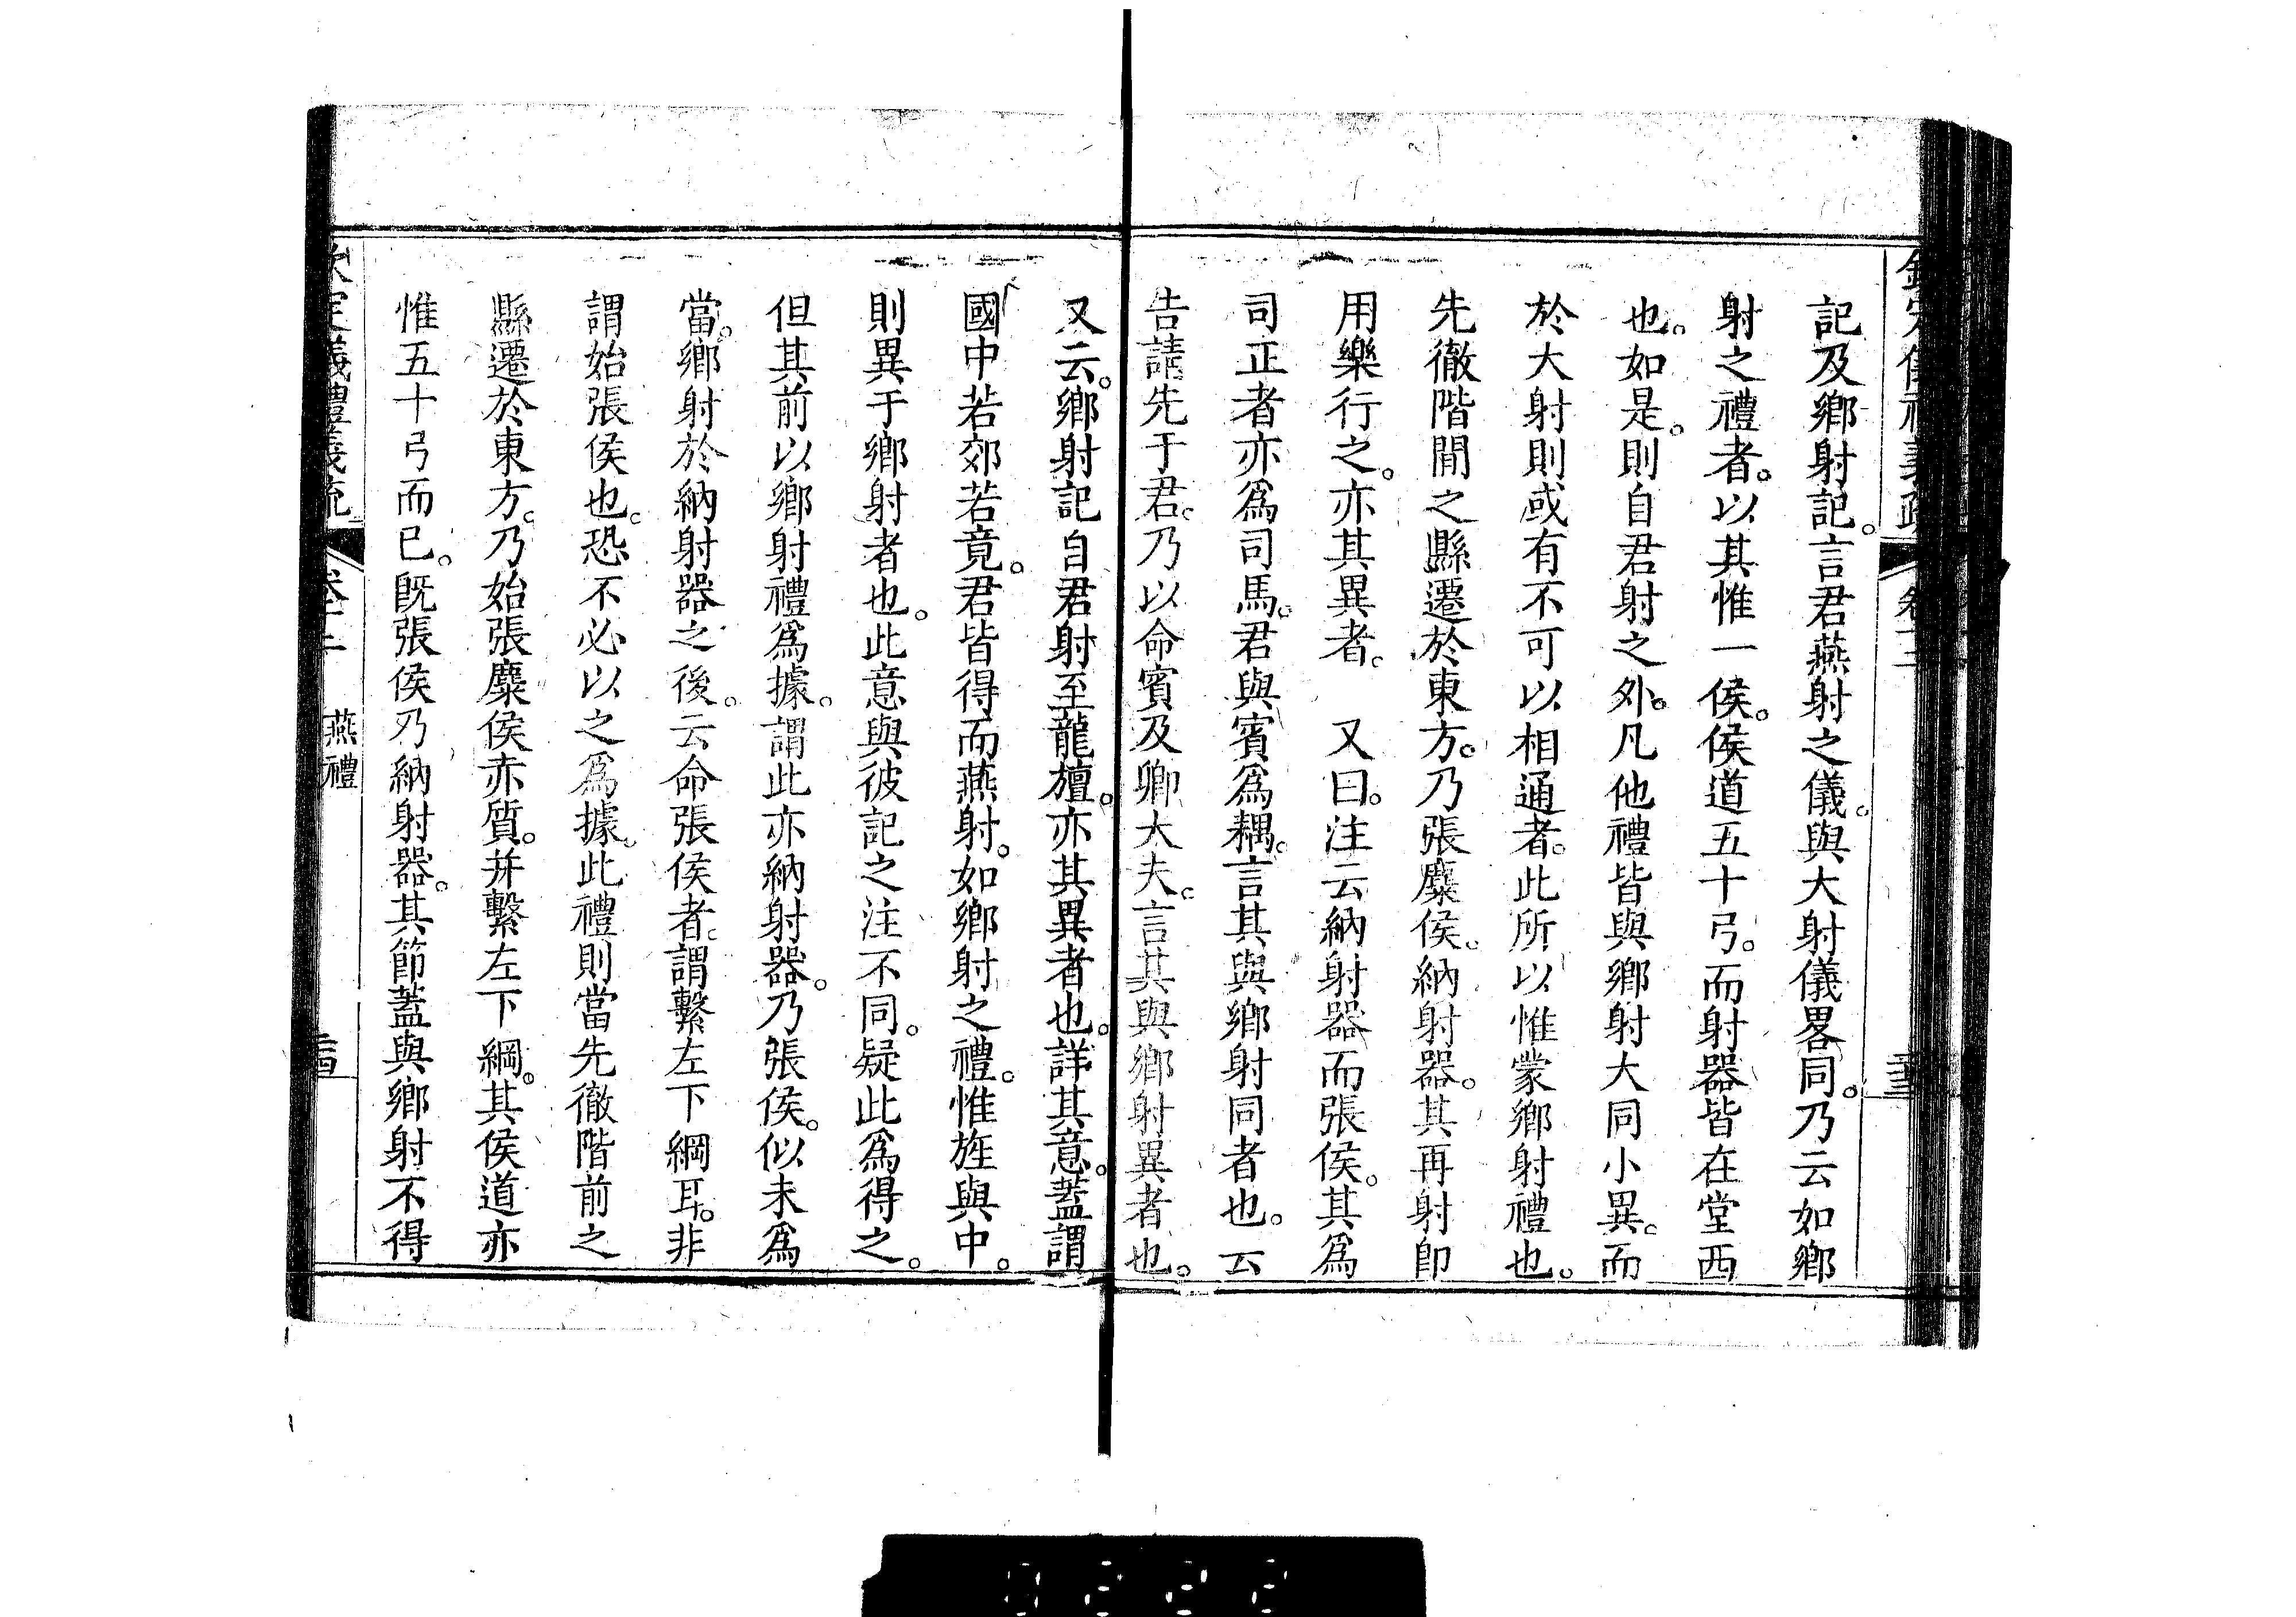 記及鄉射記。言君燕射之儀。與大射儀畧同。乃云如鄉
射之禮者。以其惟一侯。侯道五十弓。而射器皆在堂西
也。如是。則自君射之外。凡他禮皆與鄉射大同小異。而
於大射則或有不可以相通者。此所以惟蒙鄉射禮也。
先徹階間之縣遷於東方。乃張麋侯。納射器。其再射即
用樂行之。亦其異者。　又曰。注云納射器而張侯。其為
司正者亦為司馬。君與賓為耦。言其與鄉射同者也。云
告請先于君。乃以命賓及卿大夫。言其與鄉射異者也。
又云。鄉射記自君射至龍旜。亦其異者也。詳其意。蓋謂
國中若郊若竟。君皆得而燕射。如鄉射之禮。惟旌與中。
則異于鄉射者也。此意與彼記之注不同。疑此為得之。
但其前以鄉射禮為據。謂此亦納射器。乃張侯。似未為
當。鄉射於納射器之後。云命張侯者。謂繫左下綱耳。非
謂始張侯也。恐不必以之為據。此禮則當先徹階前之
縣遷於東方。乃始張麋侯赤質。并繫左下綱。其侯道亦
惟五十弓而已。旣張侯乃納射器。其節蓋與鄉射不得
欽定儀禮義疏　燕禮